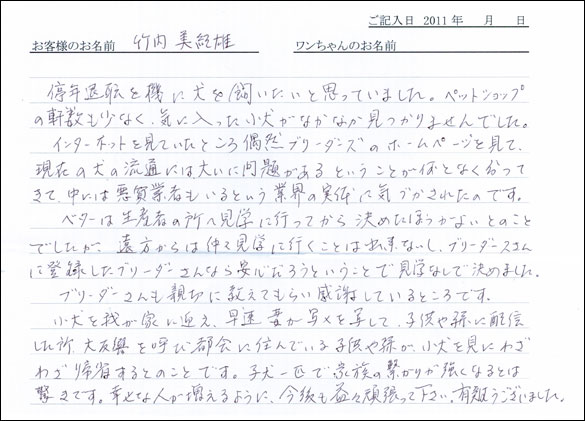 ご記入日 2011年 月 日
お客様のお名前 竹内 美紀雄 ワンちゃんのお名前
停年退転を機に犬を飼いたいと思っていました。ペットショップ
の軒数も少なく、気に入った小犬がなかなか見つかりませんでした。
インターネットを見ていたところ偶然ブリーダーズのホームページを見て、
現在の犬の流通には大いに問題があるということが何となく分って
きて、中には悪質業者もいるという業界の実体に気づかされたのです。
ベターは生産者の所へ見学に行ってから決めたほうがよいとのこと
でしたが、遠方からは仲々見学に行くことは出来ないし、ブリーダーズさん
に登録したブリーダーさんなら安心だろうということで見学なしで決めました。
ブリーダーさんも親切に教えてもらい感謝しているところです。
小犬を我が家に迎え、早速妻が写メを写して、子供や孫に配信
した所、大反響を呼び都会に住んでいる子供や孫が、小犬を見にわざ
わざ帰省するとのことです。子犬一匹で家族の繋がりが強くなるとは
驚きです。幸せな人が増えるように、今後も益々頑張って下さい。有難うございました。